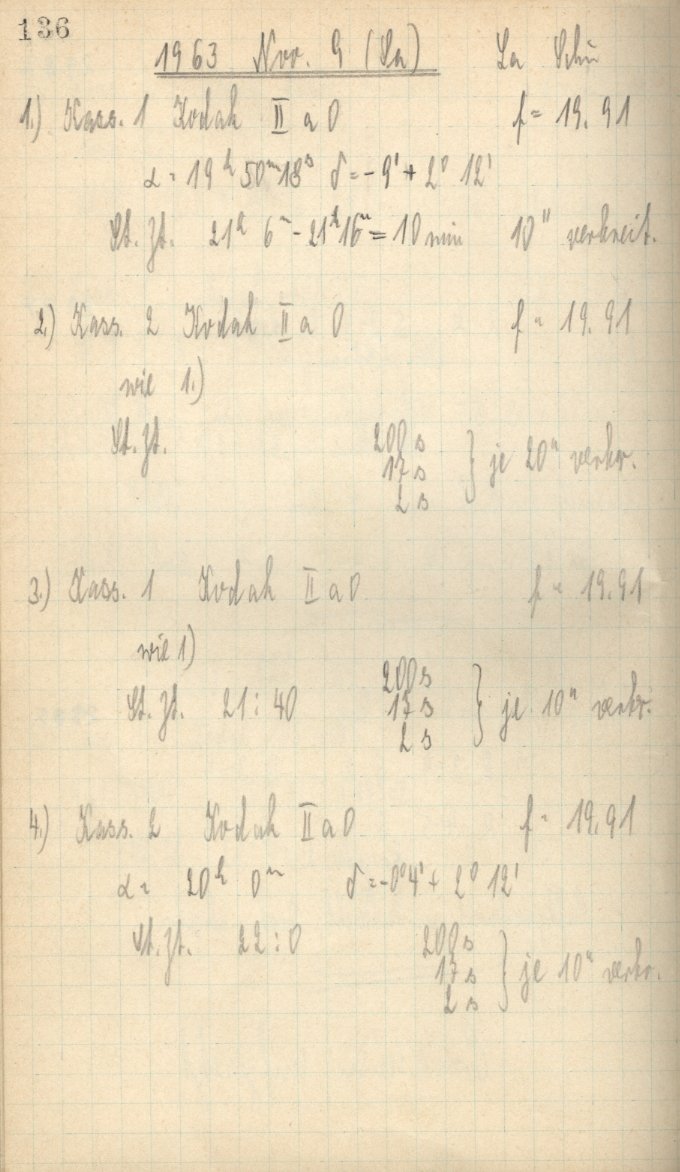 136
1963 Nov. 9 (Sa) La Schü
1.) Kass. 1 Kodak II a O f = 19.91
α = 19h 50m 18s δ = -9' + 2° 12'
St. Zt. 21h 6m - 21h 16m = 10 min 10" verbreit.
2.) Kass. 2 Kodak II a O f = 19.91
wie 1.)
St. Zt. 200 s
17 s } je 20" verbr.
2 s
3.) Kass. 1 Kodak II a O f = 19.91
wie 1)
St. Zt. 21:40 200 s
17 s } je 10" verbr.
2 s
4.) Kass. 2 Kodak II a O f = 19.91
α = 20h 0m δ = -0°4' + 2° 12'
St. Zt. 22:0 200 s
17 s } je 10" verbr.
2 s